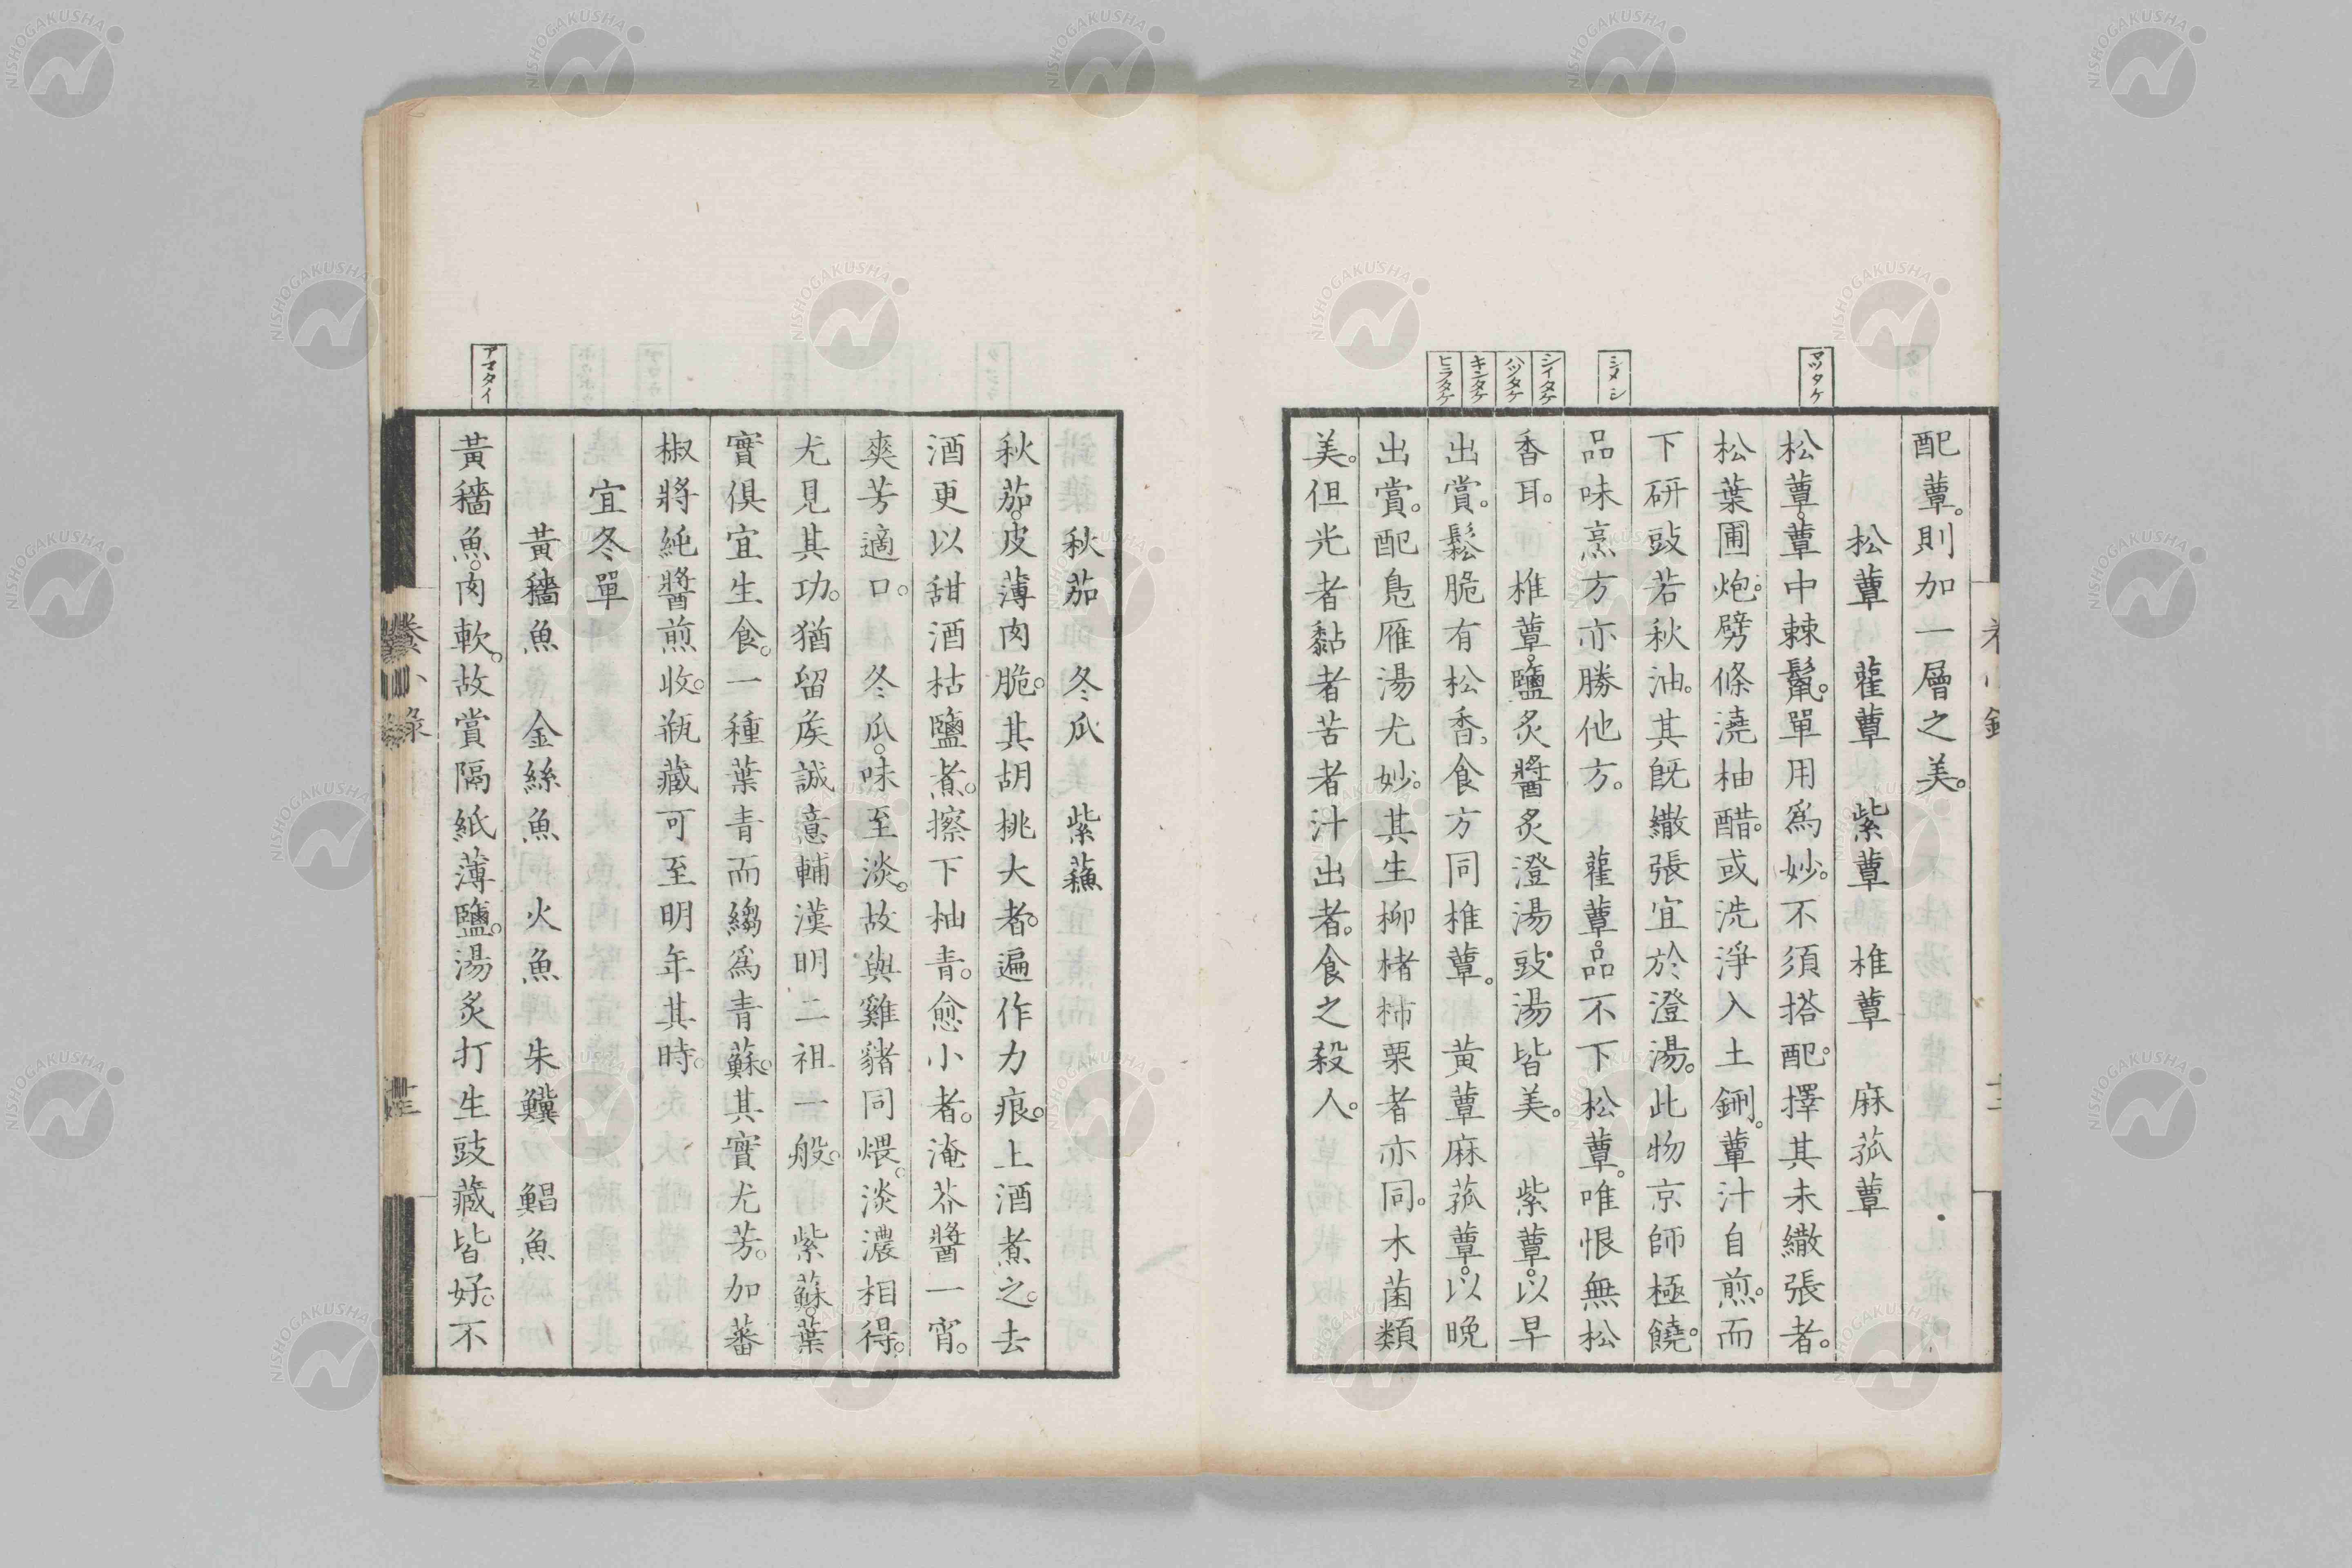 配蕈。則加一層之美。
松蕈　藋蕈　紫蕈　椎蕈　麻菰蕈
マツタケ
松蕈。蕈中棘鬣。單用爲妙。不須搭配。擇其未繖張者。
松葉圃炮。劈條澆柚醋。或洗淨入土鉶。蕈汁自煎。而
下研豉若秋油。其既繖張宜於澄湯。此物京師極饒。
シメシ
品味烹方亦勝他方。　藋蕈。品不下松蕈。唯恨無松
シイタケ
ハツタケ
香耳。　椎蕈。鹽炙醬炙澄湯豉湯皆美。　紫蕈。以早
キンタケ
ヒラタケ
出賞。鬆脆有松香。食方同椎蕈。　黃蕈麻菰蕈。以晩
出賞。配鳧雁湯尤妙。其生柳楮柿栗者亦同。木菌類
美。但光者黏者苦者汁出者。食之殺人。
秋茄　冬瓜　紫蘓
秋茄。皮薄肉脆。其胡桃大者。遍作力痕。上酒煮之。去
酒更以甜酒枯鹽煮。擦下柚青。愈小者。淹芥醬一宵。
爽芳適口。　冬瓜。味至淡。故與雞豬同煨。淡濃相得。
尤見其功。猶留矦誠意輔漢明二祖一般。　紫蘇。葉
實俱宜生食。一種葉青而縐爲青蘇。其實尤芳。加蕃
椒將純醬煎收。瓶藏可至明年其時。
宜冬單
黃穡魚　金絲魚　火魚　朱鱵　鯧魚
アマタイ
黃穡魚。肉軟。故賞隔紙薄鹽。湯炙打生豉藏皆好。不
NISHOGAKUSHA